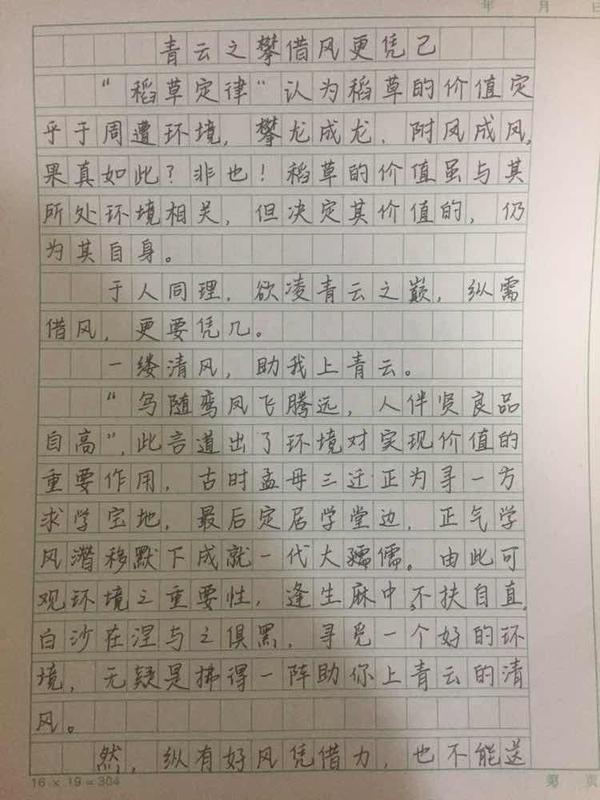 年 月 日
青云之攀借风更凭己
“稻草定律”认为稻草的价值定
乎于周遭环境，攀龙成龙，附凤成凤，
果真如此？非也！稻草的价值虽与其
所处环境相关，但决定其价值的，仍
为其自身。
于人同理，欲凌青云之巅，纵需
借风，更要凭几。
一缕清风，助我上青云。
“鸟随鸾凤飞腾远，人伴贤良品
自高”，此言道出了环境对实现价值的
重要作用，古时孟母三迁正为寻一方
求学宝地，最后定居学堂边，正气学
风潜移默下成就一代大儒。由此可
观环境之重要性，逢生麻中，不扶自直，
白沙在涅与之俱黑，寻觅一个好的环
境，无疑是拂得一阵助你上青云的清
风。
然，纵有好风凭借力，也不能送
16×19=304 第 页